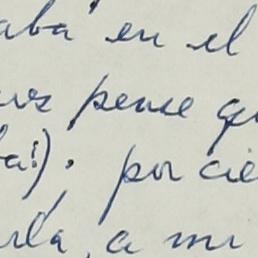 aba en el
pense qu
ba!). por cie
rla, a mi